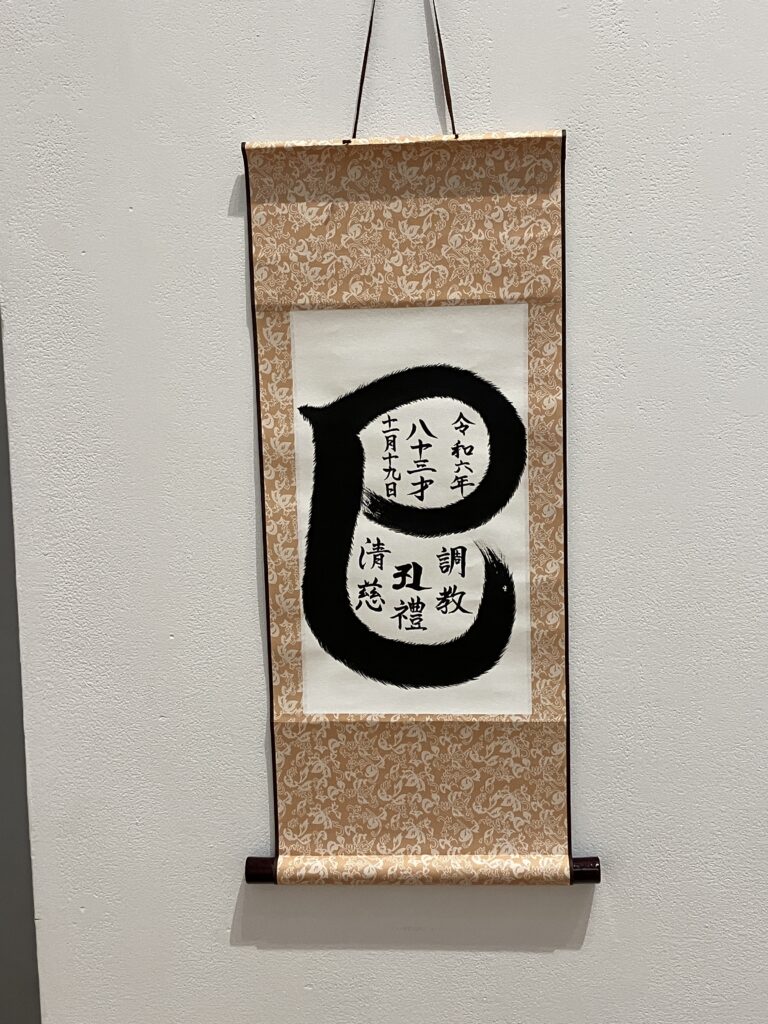 巳
令和六年
八十三才
十一月十九日
調教
孔禮
清慈